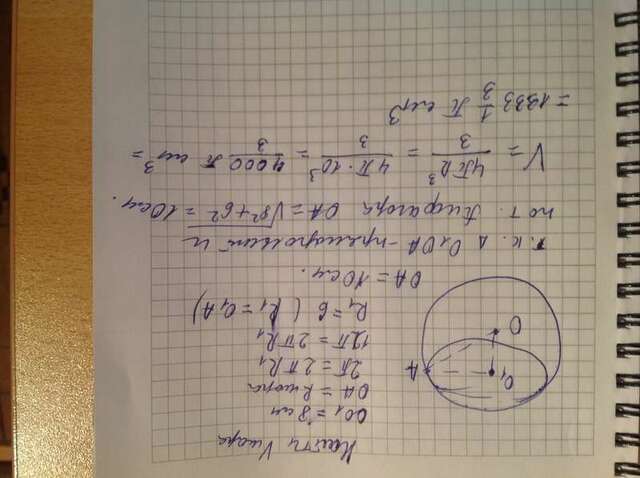 Найти Vшара
OO₁ = 8 см
OA = R шара
2П = 2πR₁
12П = 2πR₁
R₁ = 6 (R₁ = O₁A)
OA = 10 см.
O₁
A
O
т.к. Δ O₁OA - прямоуголый и
по т. Пифагора OA = √8²+6² = 10 см.
V = 4ПR³/3 = 4П·10³/3 = 4000/3 П см³ =
= 1333 1/3 П см³